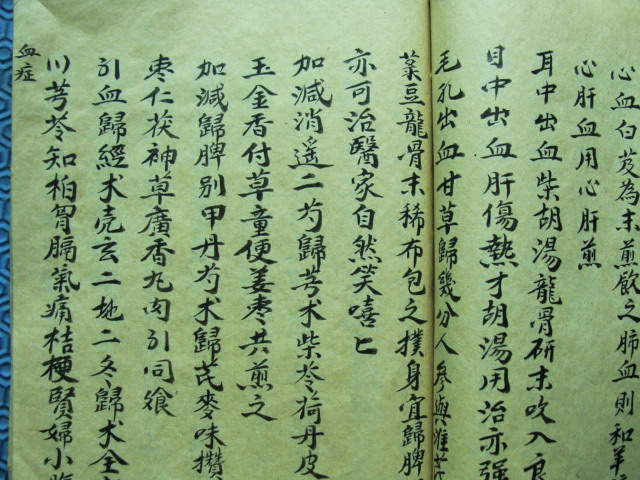 心血白芨為末煎飲之肺血則和羊
心肝血用心肝煎
耳中出血柴胡湯龍骨研末吹入良
目中出血肝傷熱才胡湯用治亦强
毛孔出血甘草歸幾分人參與淮
菉豆龍骨末稀布包之撲身宜歸脾
亦可治醫家自然笑嘻匕
加減消遥二芍歸芩术柴苓荷丹皮
玉金香付草童便姜枣共煎之
加減歸脾别甲丹芍术歸芪麥味攢
枣仁茯神草廣香九肉引同飱
引血歸經术壳玄二地二冬歸术全
川芎苓知柏胷膈氣痛桔梗賢婦小腹
血症